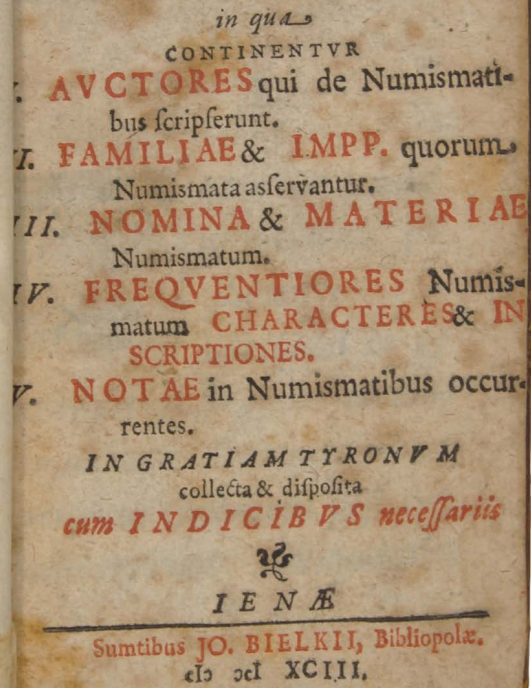 in qua
CONTINENTVR
I. AVCTORES qui de Numismati-
bus ſcripſerunt.
II. FAMILIAE & IMPP. quorum
Numismata asſervantur.
III. NOMINA & MATERIAE
Numismatum.
IV. FREQVENTIORES Numis-
matum CHARACTERES & IN
SCRIPTIONES.
V. NOTAE in Numismatibus occur-
rentes.
IN GRATIAM TYRONVM
collecta & diſpoſita
cum INDICIBVS neceſſariis
IENÆ
Sumtibus JO. BIELKII, Bibliopolæ.
cIↄ ↄcI XCIII.